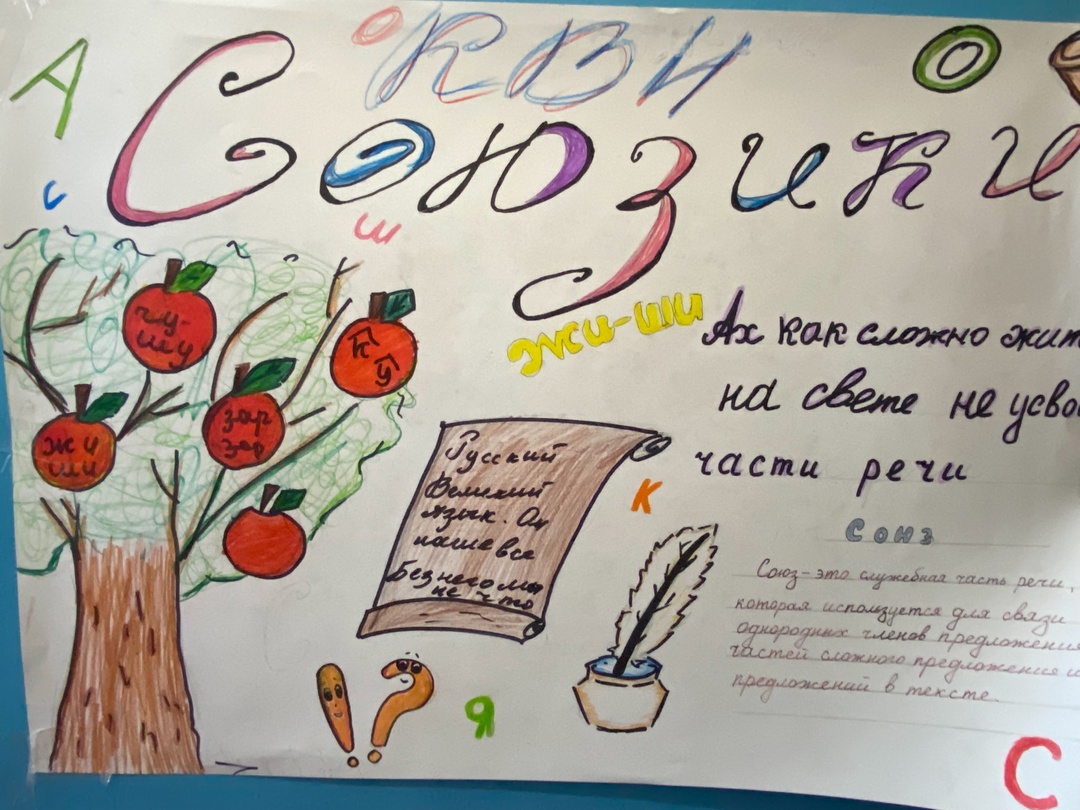 А
О
КВН
О
Союзики
с
ш
жи-ши
Ах как сложно жит
на свете не усво
части речи
жи
ши
зар
зор
Русский
Великий
язык. Он
наше все
Без него мы
не что
К
Союз
Союз - это служебная часть речи,
которая используется для связи
однородных членов предложения
частей сложного предложения и
предложений в тексте
!
?
Я
С